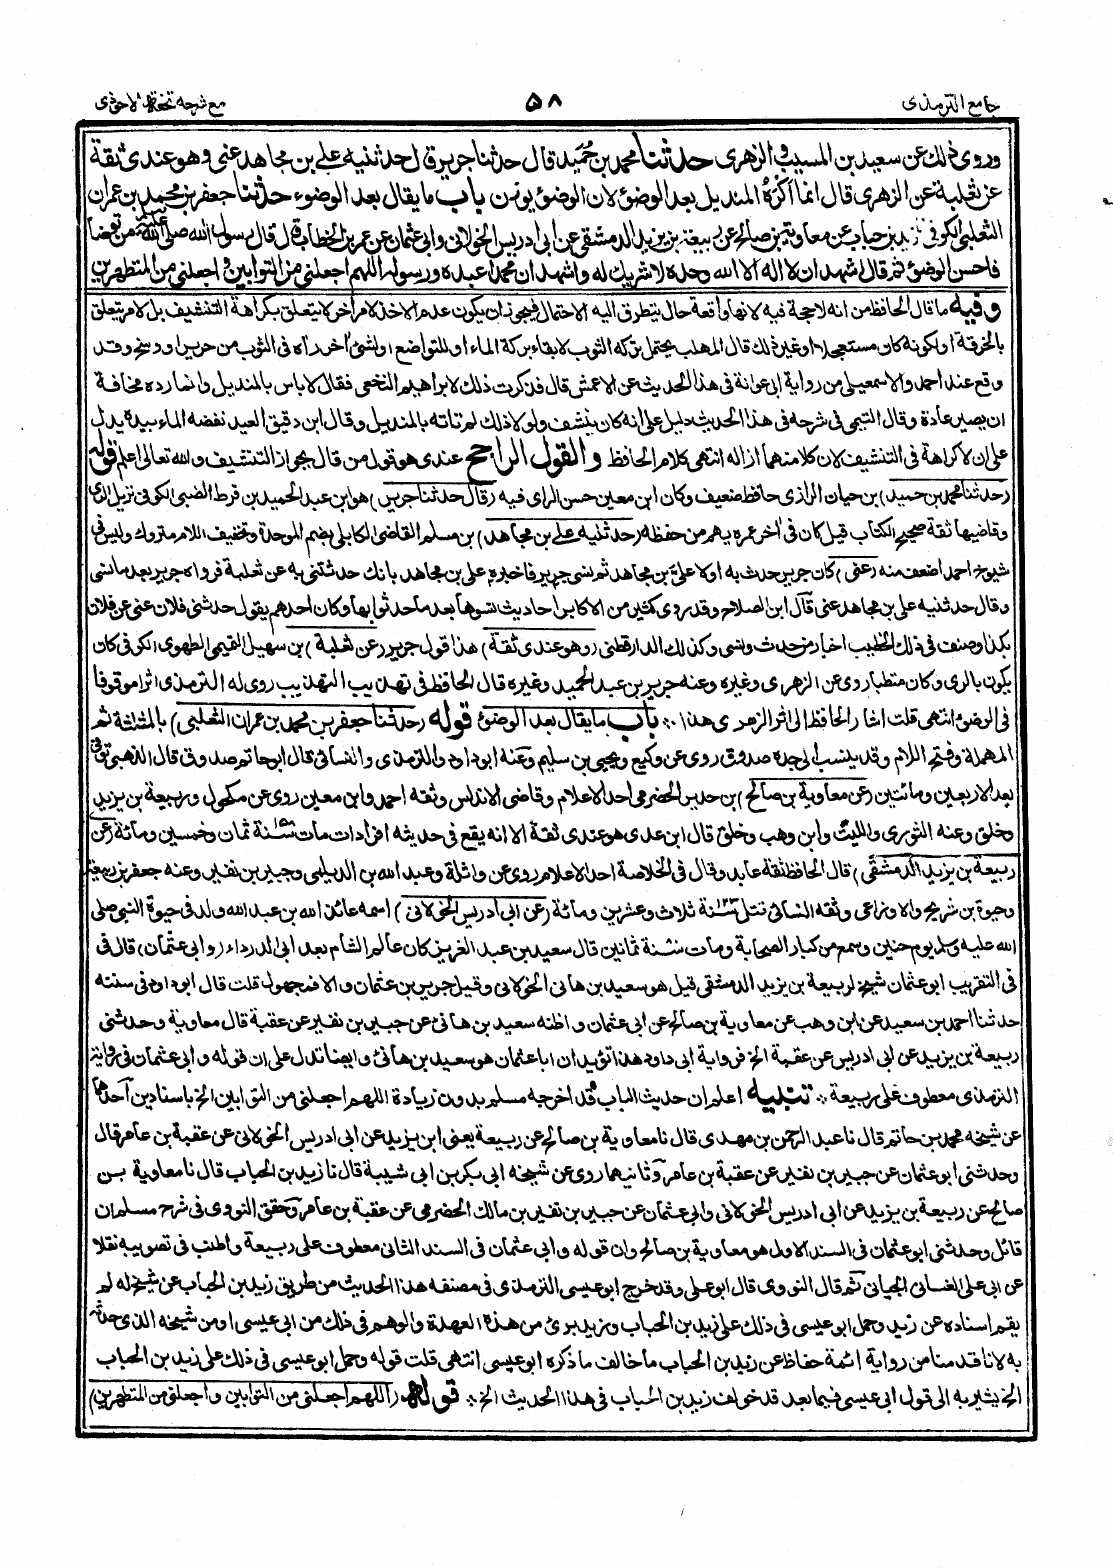 جامع الترمذي
٥٨
مع شرحه تحفة الاحوذي
وروى ذلك عن سعيد بن المسيب والزهرى حدثنا محمد بن حميد قال حدثنا جرير قال حدثنيه على بن مجاهد عنى وهو عندى ثقة
عن ثعلبة عن الزهرى قال انما اكره المنديل بعد الوضوء لان الوضوء يوزن باب ما يقال بعد الوضوء حدثنا جعفر بن محمد بن عمران
الثعلبى الكوفى نا زيد بن حباب عن معاوية بن صالح عن ربيعة بن يزيد الدمشقى عن ابى ادريس الخولانى وابى عثمان عن عمر بن الخطاب قال قال رسول الله صلى الله عليه وسلم من توضأ
فاحسن الوضوء ثم قال اشهد ان لا اله الا الله وحده لا شريك له واشهد ان محمدا عبده ورسوله اللهم اجعلنى من التوابين واجعلنى من المتطهرين
وفيه ما قال الحافظ من انه لا حجة فيه لانها واقعة حال يتطرق اليه الاحتمال فيجوز ان يكون عدم الاخذ لامر اخر لا يتعلق بكراهة التنشيف بل لامر يتعلق
بالخرقة او لكونه كان مستعجلا او غير ذلك قال المهلب يحتمل تركه الثوب لابقاء بركة الماء او للتواضع او لشئ اخر راه فى الثوب من حرير او وسخ وقد
وقع عند احمد والاسمعيلى من رواية ابى عوانة فى هذا الحديث عن الاعمش قال فذكرت ذلك لابراهيم النخعى فقال لا باس بالمنديل وانما رده مخافة
ان يصير عادة وقال التيمى فى شرحه فى هذا الحديث دليل على انه كان يتنشف ولولا ذلك لم تاته بالمنديل وقال ابن دقيق العيد نفضه الماء بيده يدل
على ان لا كراهة فى التنشيف لان كلا منهما ازاله انتهى كلام الحافظ والقول الراجح عندى هو قول من قال بجواز التنشيف والله تعالى اعلم قوله
(حدثنا محمد بن حميد) بن حيان الرازى حافظ ضعيف وكان ابن معين حسن الراى فيه (قال حدثنا جرير) هو ابن عبد الحميد بن قرط الضبى الكوفى نزيل الرى
وقاضيها ثقة صحيح الكتاب قيل كان فى اخر عمره يهم من حفظه (حدثنيه على بن مجاهد) بن مسلم القاضى الكابلى بضم الموحدة وتخفيف اللام متروك وليس فى
شيوخ احمد اضعف منه (عنى) كان جرير حدث به اولا على بن مجاهد ثم نسى جرير فاخبره على بن مجاهد بانك حدثتنى به عن ثعلبة فرواه جرير بعد ما نسى
وقال حدثنيه على بن مجاهد عنى قال ابن الصلاح وقد روى كثير من الاكابر احاديث نسوها بعد ما حدثوا بها وكان احدهم يقول حدثنى فلان عنى عن فلان
بكذا وصنف فى ذلك الخطيب اخبار من حدث ونسى وكذلك الدارقطنى (وهو عندى ثقة) هذا قول جرير (عن ثعلبة) بن سهيل التميمى الطهوى الكوفى كان
يكون بالرى وكان متطببا روى عن الزهرى وغيره وعنه جرير بن عبد الحميد وغيره قال الحافظ فى تهذيب التهذيب روى له الترمذى اثرا موقوفا
فى الوضوء انتهى قلت اشار الحافظ الى اثر الزهرى هذا باب ما يقال بعد الوضوء قوله (حدثنا جعفر بن محمد بن عمران الثعلبى) بالمثلثة ثم
المهملة وفتح اللام وقد ينسب الى جده صدوق روى عن وكيع ويحيى بن سليم وعنه ابو داود والترمذى والنسائى قال ابو حاتم صدوق قال الذهبى توفى
بعد الاربعين ومائتين (عن معاوية بن صالح) بن حدير الحضرمى احد الاعلام وقاضى الاندلس وثقه احمد وابن معين روى عن مكحول وربيعة بن يزيد
وخلق وعنه الثورى والليث وابن وهب وخلق قال ابن عدى هو عندى ثقة الا انه يقع فى حديثه افرادات مات سنة ١٥٨ ثمان وخمسين ومائة (عن
ربيعة بن يزيد الدمشقى) قال الحافظ ثقة عابد وقال فى الخلاصة احد الاعلام روى عن واثلة وعبد الله بن الديلمى وجبير بن نفير وعنه جعفر بن ربيعة
وحيوة بن شريح والاوزاعى وثقه النسائى قتل سنة ١٢٣ ثلاث وعشرين ومائة (عن ابى ادريس الخولانى) اسمه عائذ الله بن عبد الله ولد فى حيوة النبى صلى
الله عليه وسلم يوم حنين وسمع من كبار الصحابة ومات سنة ثمانين قال سعيد بن عبد العزيز كان عالم الشام بعد ابى الدرداء (وابى عثمان) قال فى
فى التقريب ابو عثمان شيخ لربيعة بن يزيد الدمشقى قيل هو سعيد بن هانى الخولانى وقيل جرير بن عثمان والا فمجهول قلت قال ابو داود فى سننه
حدثنا احمد بن سعيد عن ابن وهب عن معاوية بن صالح عن ابى عثمان واظنه سعيد بن هانئ عن جبير بن نفير عن عقبة قال معاوية وحدثنى
ربيعة بن يزيد عن ابى ادريس عن عقبة الخ فرواية ابى داود هذا تؤيد ان ابا عثمان هو سعيد بن هانئ وايضا تدل على ان قوله وابى عثمان فى رواية
الترمذى معطوف على ربيعة تنبيه اعلم ان حديث الباب قد اخرجه مسلم بدون زيادة اللهم اجعلنى من التوابين الخ باسنادين احدهما
عن شيخه محمد بن حاتم قال نا عبد الرحمن بن مهدى قال نا معاوية بن صالح عن ربيعة يعنى ابن يزيد عن ابى ادريس الخولانى عن عقبة بن عامر قال
وحدثنى ابو عثمان عن جبير بن نفير عن عقبة بن عامر وثانيهما روى عن شيخه ابى بكر بن ابى شيبة قال نا زيد بن الحباب قال نا معاوية بن
صالح عن ربيعة بن يزيد عن ابى ادريس الخولانى وابى عثمان عن جبير بن نفير بن مالك الحضرمى عن عقبة بن عامر وحقق النووى فى شرح مسلم ان
قائل وحدثنى ابو عثمان فى السند الاول هو معاوية بن صالح وان قوله وابى عثمان فى السند الثانى معطوف على ربيعة واطنب فى تصويبه نقلا
عن ابى على الغسانى الجيانى ثم قال النووى قال ابو على وقد خرج ابو عيسى الترمذى فى مصنفه هذا الحديث من طريق زيد بن الحباب عن شيخ له لم
يقم اسناده عن زيد وحمل ابو عيسى فى ذلك على زيد بن الحباب وزيد برئ من هذه العهدة والوهم فى ذلك من ابى عيسى او من شيخه الذى حدثه
به لانا قدمنا من رواية ائمة حفاظ عن زيد بن الحباب ما خالف ما ذكره ابو عيسى انتهى قلت قوله وحمل ابو عيسى فى ذلك على زيد بن الحباب
الخ يشير به الى قول ابى عيسى فيما بعد قد خولف زيد بن الحباب فى هذا الحديث الخ قوله (اللهم اجعلنى من التوابين واجعلنى من المتطهرين)